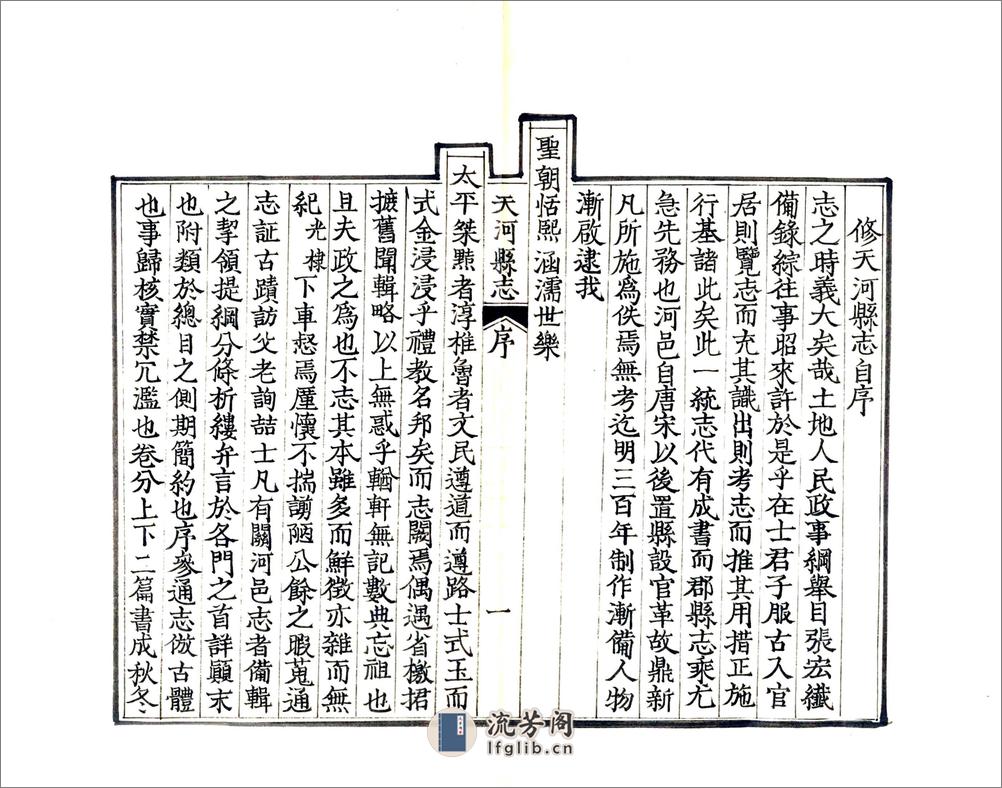 修天河縣志自序
志之時義大矣哉土地人民政事綱舉目張宏纖
備錄綜往事昭來許於是乎在士君子服古入官
居則覽志而充其識出則考志而推其用措正施
行基諸此矣此一統志代有成書而郡縣志乘尤
急先務也河邑自唐宋以後置縣設官革故鼎新
凡所施爲佚焉無考迄明三百年制作漸備人物
漸啟逮我
聖朝恬熙涵濡世樂
天河縣志
序
一
太平桀黠者淳椎魯者文民遵道而遵路士式玉而
式金浸浸乎禮教名邦矣而志闕焉偶遇省檄捃
摭舊聞輯略以上無惑乎輶軒無記數典忘祖也
且夫政之爲也不志其本雖多而鮮徵亦雜而無
紀光棣下車惄焉厪懷不揣謭陋公餘之暇蒐通
志証古蹟訪父老詢喆士凡有關河邑志者備輯
之挈領提綱分條析縷弁言於各門之首詳顚末
也附類於總目之側期簡約也序參通志倣古體
也事歸核實禁冗濫也卷分上下二篇書成秋冬
流芳阁
lfglib.cn